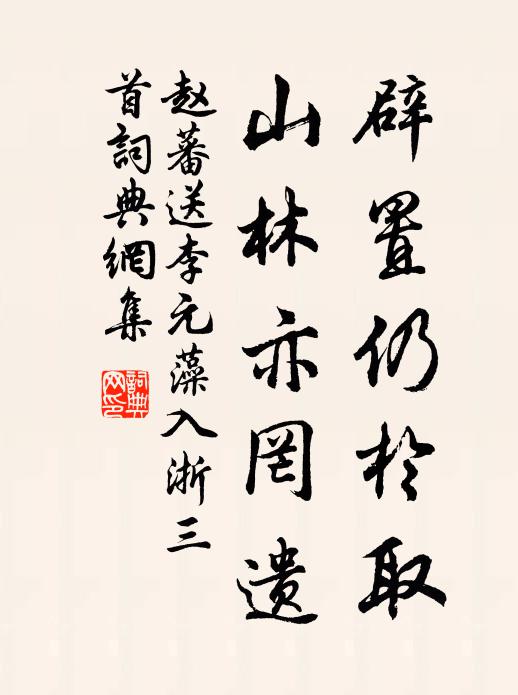 辟置仍於取
山林亦罔遗
赵蕃送李元藻入浙三
首詞典網集
詞典网印